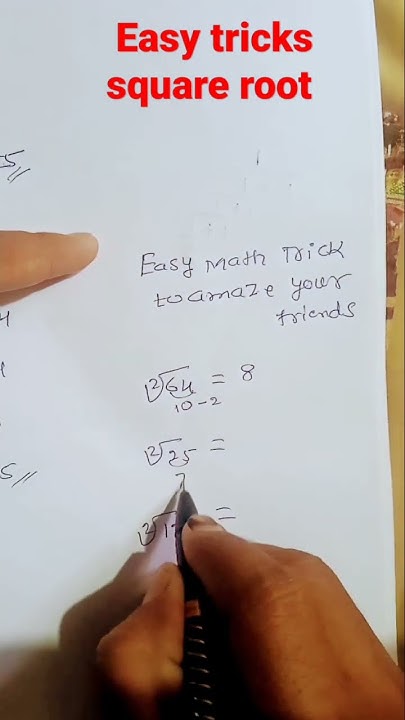 Easy tricks
square root
5//
Easy Math Trick
to amaze your
friends
²√64 = 8
10-2
²√25 =
5//
=